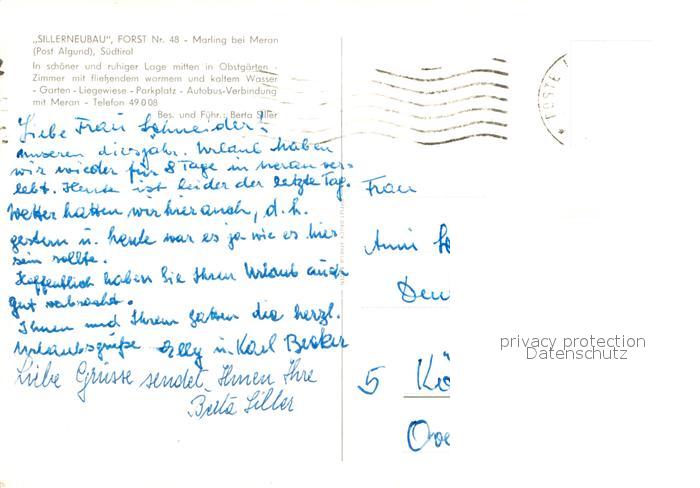 „SILLERNEUBAU“, FORST Nr. 48 - Marling bei Meran
(Post Algund), Südtirol
In schöner und ruhiger Lage mitten in Obstgärten -
Zimmer mit fließendem warmem und kaltem Wasser
- Garten - Liegewiese - Parkplatz - Autobus-Verbindung
mit Meran - Telefon 49008
Bes. und Führ.: Berta Siller
Liebe Frau Schneider!
unseren diesjähr. Urlaub haben
wir wieder für 8 Tage in Meran ver-
lebt. Heute ist leider der letzte Tag.
Wetter hatten wir hier auch, d. h.
gestern u. heute war es ja wie es hier
sein sollte.
Hoffentlich haben Sie Ihren Urlaub auch
gut verbracht.
Ihnen und Ihrem Gatten die herzl.
Urlaubsgrüße Elly u. Karl Becker
Liebe Grüsse sendet Ihnen Ihre
Berta Siller
Frau
Anni
5 Kö
privacy protection
Datenschutz